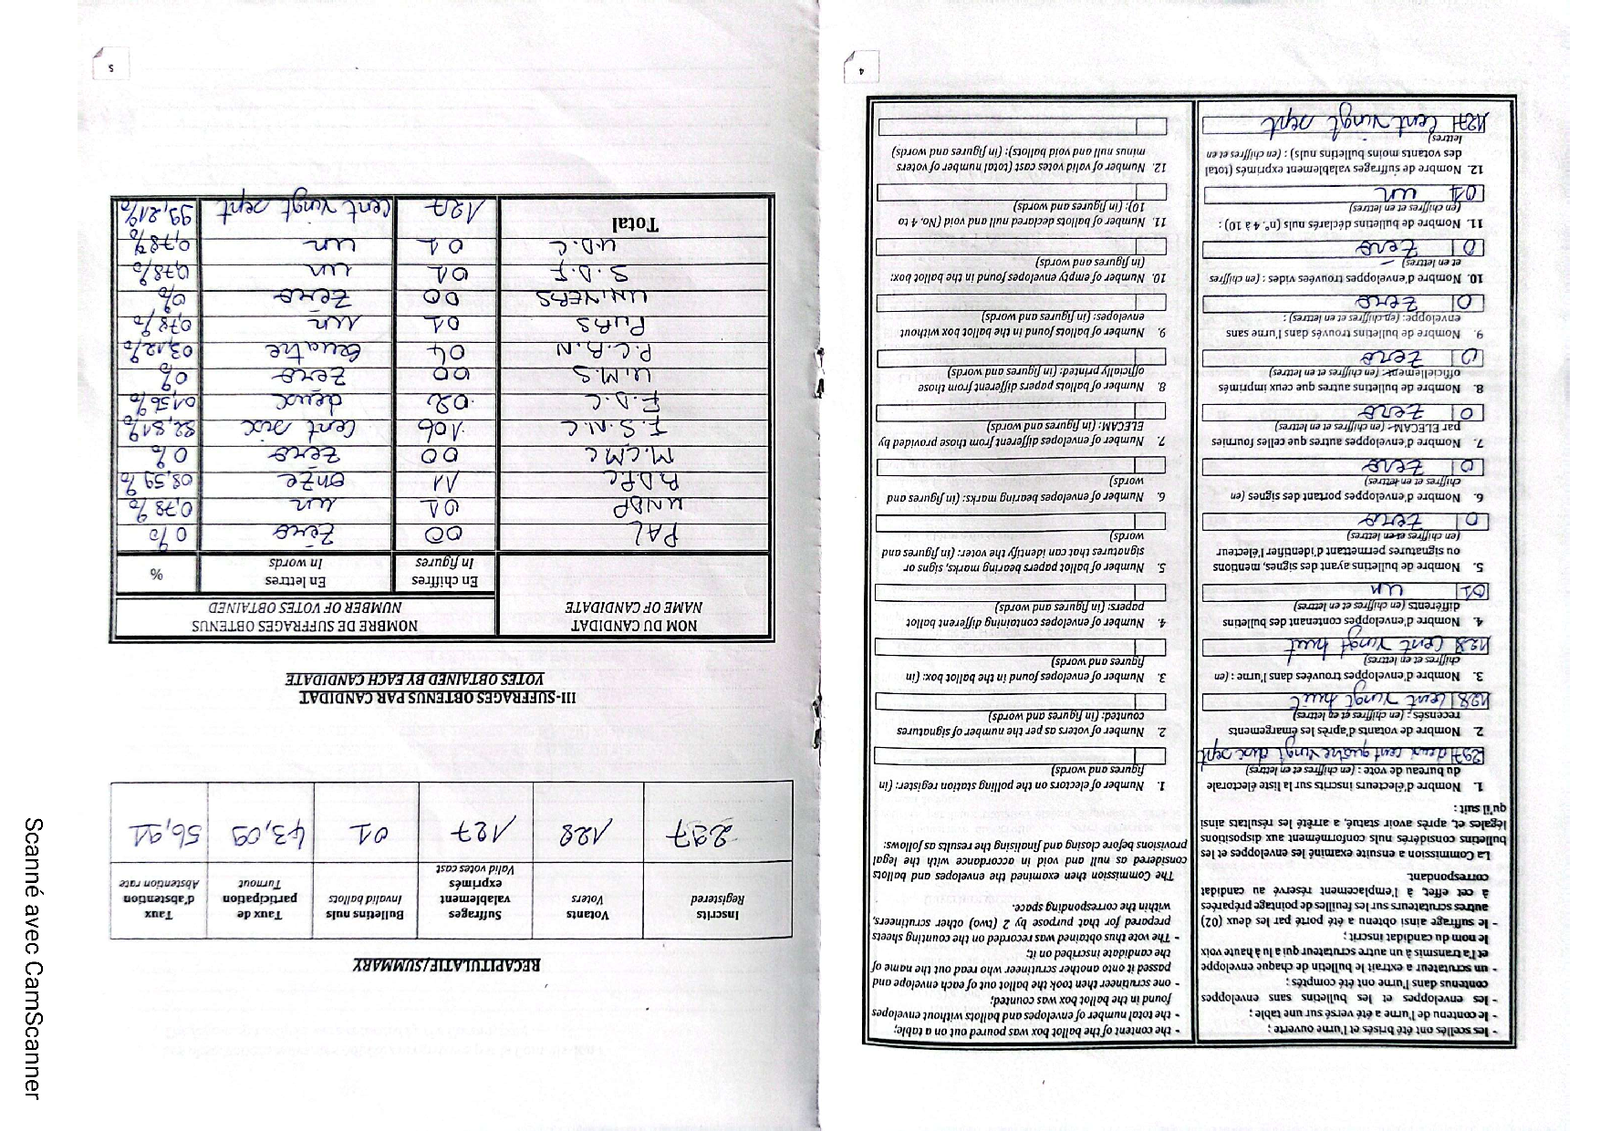 - les scellés ont été brisés et l'urne ouverte ;
- le contenu de l'urne a été versé sur une table ;
- les enveloppes et les bulletins sans enveloppes
contenus dans l'urne ont été comptés ;
- un scrutateur a extrait le bulletin de chaque enveloppe
et l'a transmis à un autre scrutateur qui a lu à haute voix
le nom du candidat inscrit ;
- le suffrage ainsi obtenu a été porté par les deux (02)
autres scrutateurs sur les feuilles de pointage préparées
à cet effet, à l'emplacement réservé au candidat
correspondant.
La Commission a ensuite examiné les enveloppes et les
bulletins considérés nuls conformément aux dispositions
légales et, après avoir statué, a arrêté les résultats ainsi
qu'il suit :
1. Nombre d'électeurs inscrits sur la liste électorale
du bureau de vote : (en chiffres et en lettres)
297 deux cent quatre vingt dix sept
2. Nombre de votants d'après les émargements
recensés : (en chiffres et en lettres)
128 Cent vingt huit
3. Nombre d'enveloppes trouvées dans l'urne : (en
chiffres et en lettres)
128 Cent vingt huit
4. Nombre d'enveloppes contenant des bulletins
différents (en chiffres et en lettres)
01 un
5. Nombre de bulletins ayant des signes, mentions
ou signatures permettant d'identifier l'électeur
(en chiffres et en lettres)
0 Zero
6. Nombre d'enveloppes portant des signes (en
chiffres et en lettres)
0 Zero
7. Nombre d'enveloppes autres que celles fournies
par ELECAM- (en chiffres et en lettres)
0 Zero
8. Nombre de bulletins autres que ceux imprimés
officiellement- (en chiffres et en lettres)
0 Zero
9. Nombre de bulletins trouvés dans l'urne sans
enveloppe: (en chiffres et en lettres) :
0 Zero
10. Nombre d'enveloppes trouvées vides : (en chiffres
et en lettres)
0 Zero
11. Nombre de bulletins déclarés nuls (n°. 4 à 10) :
(en chiffres et en lettres)
01 un
12. Nombre de suffrages valablement exprimés (total
des votants moins bulletins nuls) : (en chiffres et en
lettres)
127 Cent vingt sept
- the content of the ballot box was poured out on a table;
- the total number of envelopes and ballots without envelopes
found in the ballot box was counted;
- one scrutineer then took the ballot out of each envelope and
passed it onto another scrutineer who read out the name of
the candidate inscribed on it;
- The vote thus obtained was recorded on the counting sheets
prepared for that purpose by 2 (two) other scrutineers,
within the corresponding space.
The Commission then examined the envelopes and ballots
considered as null and void in accordance with the legal
provisions before closing and finalising the results as follows:
1. Number of electors on the polling station register: (in
figures and words)
2. Number of voters as per the number of signatures
counted: (in figures and words)
3. Number of envelopes found in the ballot box: (in
figures and words)
4. Number of envelopes containing different ballot
papers: (in figures and words)
5. Number of ballot papers bearing marks, signs or
signatures that can identify the voter: (in figures and
words)
6. Number of envelopes bearing marks: (in figures and
words)
7. Number of envelopes different from those provided by
ELECAM: (in figures and words)
8. Number of ballots papers different from those
officially printed: (in figures and words)
9. Number of ballots found in the ballot box without
envelopes: (in figures and words)
10. Number of empty envelopes found in the ballot box:
(in figures and words)
11. Number of ballots declared null and void (No. 4 to
10): (in figures and words)
12. Number of valid votes cast (total number of voters
minus null and void ballots): (in figures and words)
4
RECAPITULATIF/SUMMARY
Inscrits Registered | Votants Voters | Suffrages valablement exprimés Valid votes cast | Bulletins nuls Invalid ballots | Taux de participation Turnout | Taux d'abstention Abstention rate
297 | 128 | 127 | 01 | 43,09 | 56,91
III- SUFFRAGES OBTENUS PAR CANDIDAT
VOTES OBTAINED BY EACH CANDIDATE
NOM DU CANDIDAT | NOMBRE DE SUFFRAGES OBTENUS
NAME OF CANDIDATE | NUMBER OF VOTES OBTAINED
En chiffres In figures | En lettres In words | %
PAL | 00 | Zéro | 0%
UNDP | 01 | un | 0,78%
RDPC | 11 | onze | 08,59%
M.CMC | 00 | Zéro | 0%
F.S.N.C | 106 | Cent six | 82,81%
F.D.C | 02 | deux | 01,56%
U.M.S | 00 | Zero | 0%
P.C.R.N | 04 | Quatre | 03,12%
PURS | 01 | un | 0,78%
UNIVERS | 00 | Zéro | 0%
S.D.F | 01 | un | 0,78%
U.D.C | 01 | un | 0,78%
Total | 127 | Cent vingt sept | 99,21%
5
Scanné avec CamScanner